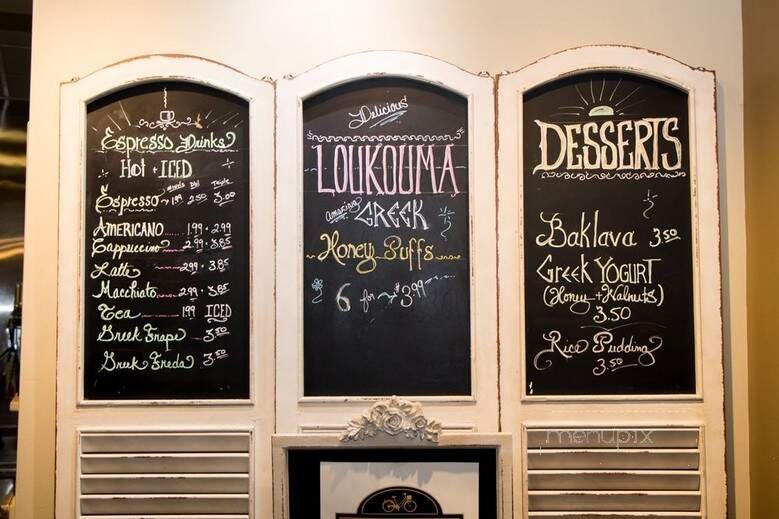 Espresso Drinks
Hot + ICED
Dbl Triple
Espresso 1.99 2.50 3.00
AMERICANO..... 1.99 - 2.99
Cappuccino.... 2.99 - 3.85
Latte 2.99 - 3.85
Macchiato..... 2.99 - 3.85
Tea....... 1.99 ICED
Greek Frape 3.50
Greek Fredo 3.50
Delicious
LOUKOUMA
Amazing GREEK
Honey Puffs
6 for $3.99
DESSERTS
Baklava 3.50
Greek YOGURT
(Honey + Walnuts)
3.50
Rice Pudding
3.50
menupix